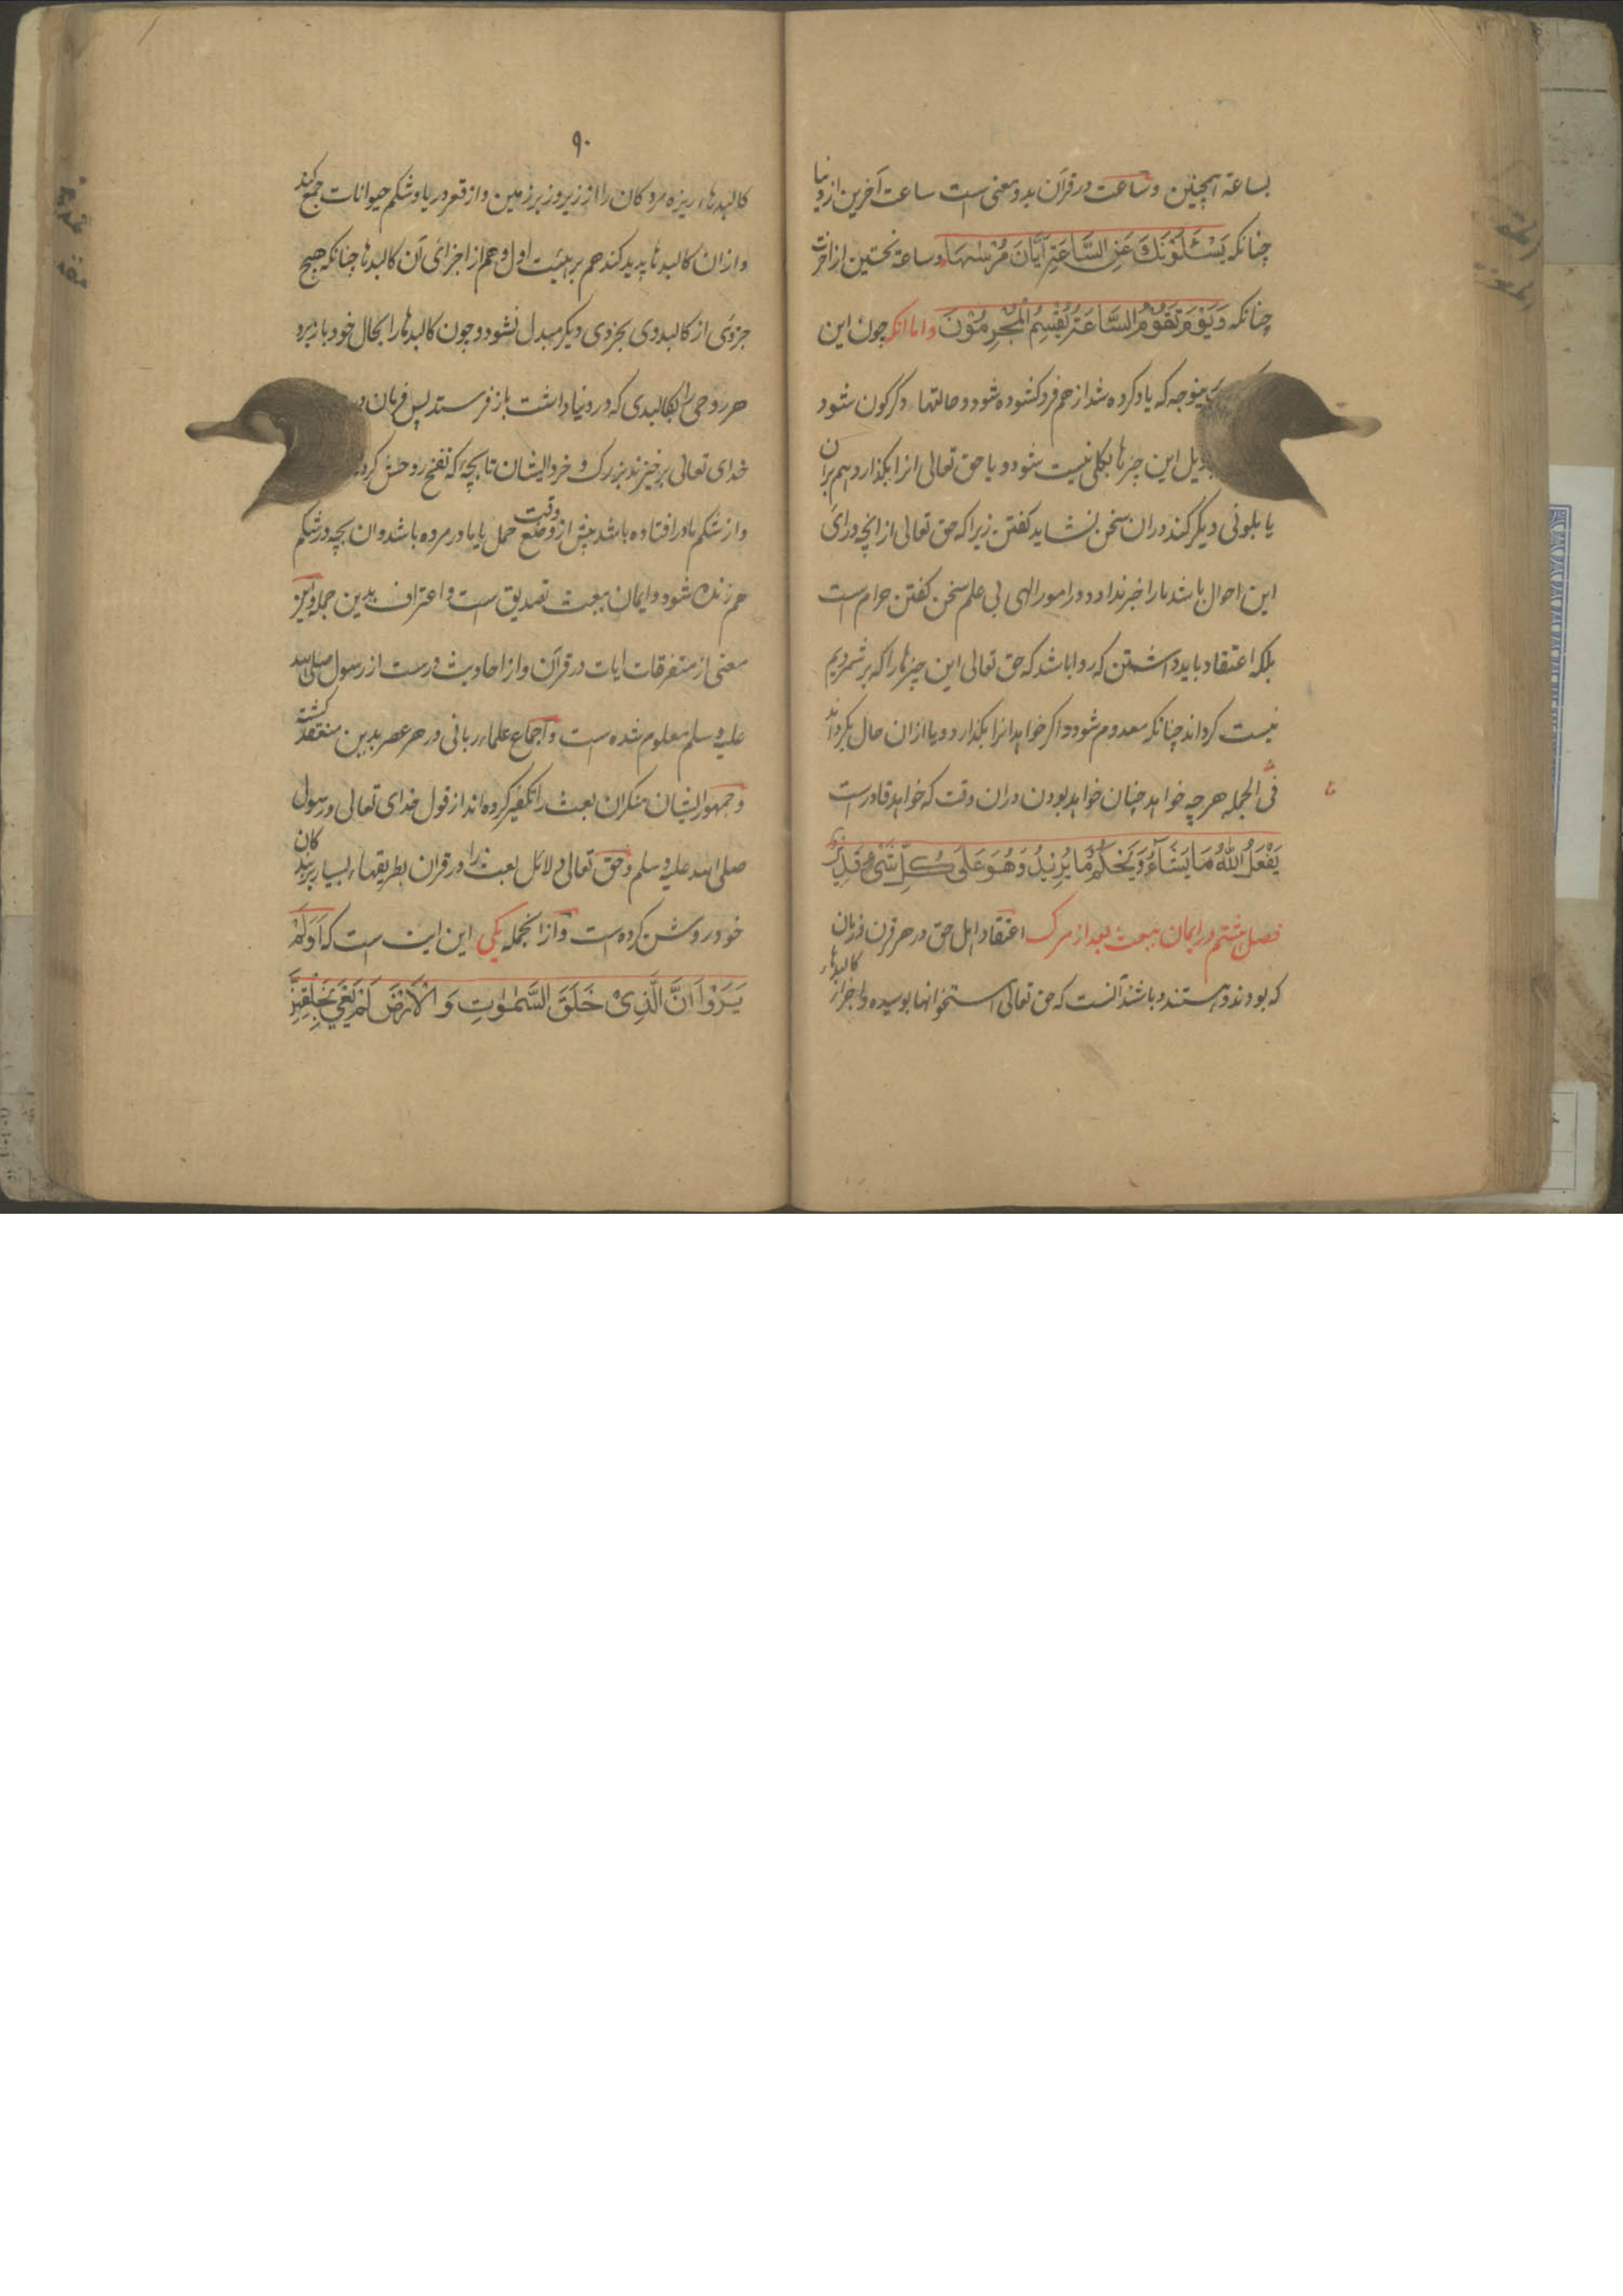 بساعة همچنین وساعت در قرآن بدو معنی است ساعت آخرین از دنیا
چنانکه یَسْئَلُوْنَكَ عَنِ السَّاعَةِ اَیَّانَ مُرْسٰهَا وساعة نخستین از اخرت
چنانکه وَیَوْمَ تَقُوْمُ السَّاعَةُ یُقْسِمُ الْمُجْرِمُوْنَ واما انکه چون این
که یاد کرده شد از هم فرو کشوده شود و حالتها دکرکون شود
این چیزها بکلی نیست شود و یا حق تعالی انرا بکذارد هم بران
یا بلونی دیکر کند دران سخن نشاید کفتن زیرا که حق تعالی از انچه ورای
این احوال باشد ما را خبر نداد و در امور الهی بی علم سخن کفتن حرام است
بلکه اعتقاد باید داشتن که روا باشد که حق تعالی این چیزها را که بر شمردیم
نیست کرداند چنانکه معدوم شود و اکر خواهد انرا بکذارد و یا ازان حال بکرداند
فی الجمله هرچه خواهد چنان خواهد بودن دران وقت که خواهد قادر است
یَفْعَلُ اللّٰهُ مَا یَشَآءُ وَیَحْكُمُ مَا یُرِیْدُ وَهُوَ عَلٰی كُلِّ شَیْءٍ قَدِیْرٌ
فصل هشتم در ایمان ببعث بعد از مرک اعتقاد اهل حق در هر قرن و زمان
که بودند و هستند و باشند آنست که حق تعالی استخوانها بوسیده و اجزاء کالبدهاء
۹۰
کالبدهاء ریزه مردکان را از زیر و زبر زمین و از قعر دریا و شکم حیوانات جمع کند
و ازان کالبدها پدید کند هم بر هیئت اول و هم از اجزای آن کالبدها چنانکه هیچ
جزوی از کالبدی بجزوی دیکر مبدل نشود و چون کالبدها را بحال خود باز برد
هر روحی را بکالبدی که در دنیا داشت باز فرستد پس فرمان
خدای تعالی برخیزند بزرک و خرد ایشان تا بچه که نفخ روحش کرده
و از شکم مادر افتاده باشد پیش از وقت وضع حمل یا مادر مرده باشد و ان بچه در شکم
هم زنده شود و ایمان ببعث تصدیق است و اعتراف بدین جمله و این
معنی از متفرقات ایات در قرآن و از احادیث درست از رسول صلی الله
علیه و سلم معلوم شده است و اجماع علماء ربانی در هر عصر بدین منعقد کشته
و جمهور ایشان منکران بعث را تکفیر کرده اند از قول خدای تعالی و رسول
صلی الله علیه و سلم و حق تعالی دلائل بعث را در قران بطریقهاء بسیار بر بندکان
خود روشن کرده است و از انجمله یکی این ایت است که اَوَلَمْ
یَرَوْا اَنَّ الَّذِیْ خَلَقَ السَّمٰوٰتِ وَالْاَرْضَ وَلَمْ یَعْیَ بِخَلْقِهِنَّ